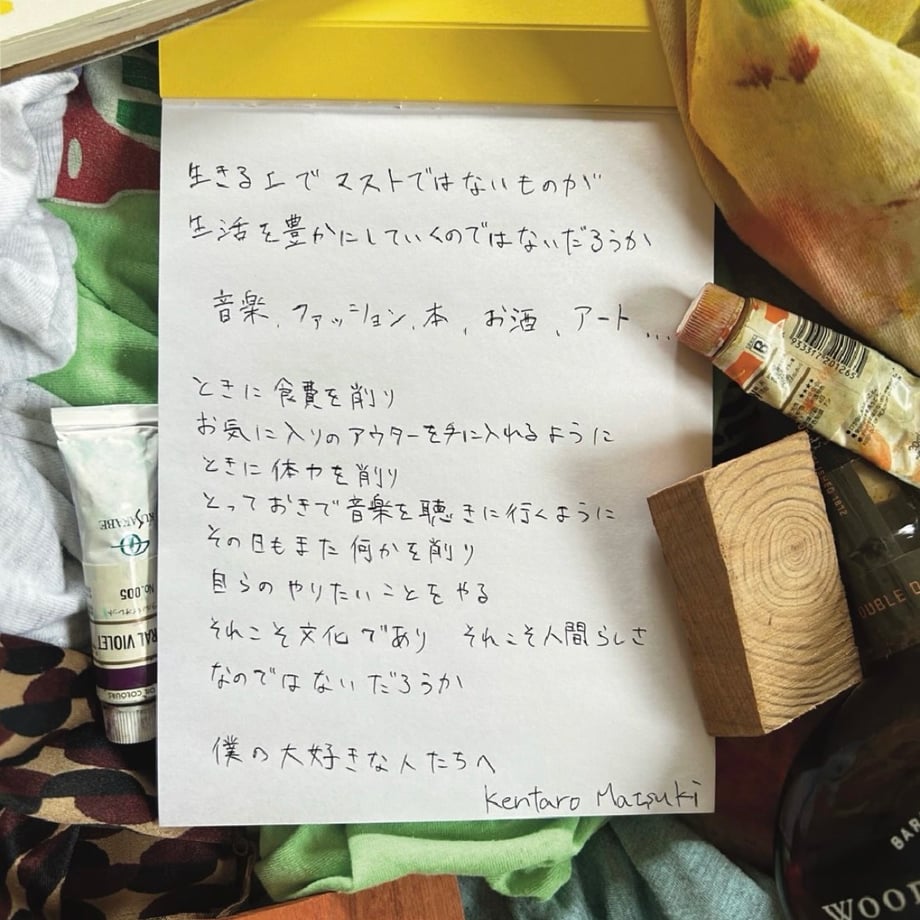 生きる上でマストではないものが
生活を豊かにしていくのではないだろうか
音楽、ファッション、本、お酒、アート...
ときに食費を削り
お気に入りのアウターを手に入れるように
ときに体力を削り
とっておきで音楽を聴きに行くように
その日もまた何かを削り
自らのやりたいことをやる
それこそ文化であり それこそ人間らしさ
なのではないだろうか
僕の大好きな人たちへ
Kentaro Matsuki
KUSAKABE
No.005
RAL VIOLET
OIL COLOURS
B
9333172012651
1872
OUBLE O
BAR
WOOD